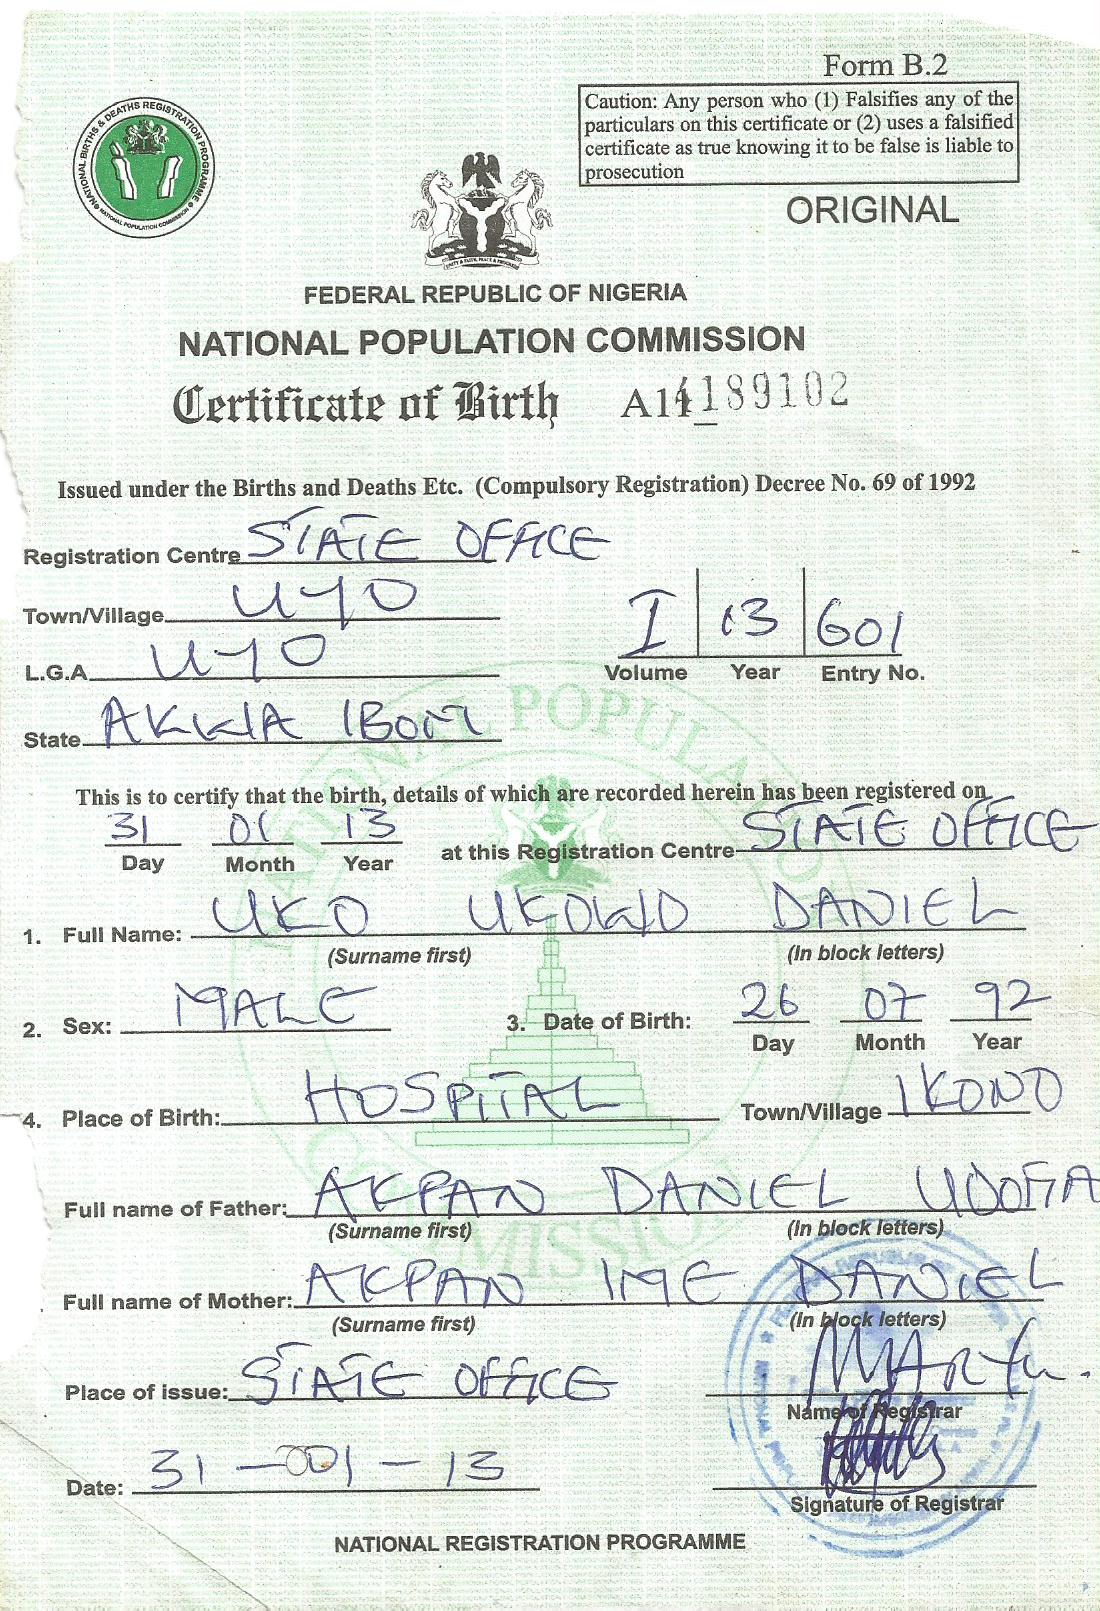 Form B.2
Caution: Any person who (1) Falsifies any of the
particulars on this certificate or (2) uses a falsified
certificate as true knowing it to be false is liable to
prosecution
ORIGINAL
NATIONAL BIRTHS & DEATHS REGISTRATION PROGRAMME
NATIONAL POPULATION COMMISSION
FEDERAL REPUBLIC OF NIGERIA
NATIONAL POPULATION COMMISSION
Certificate of Birth 189102
Issued under the Births and Deaths Etc. (Compulsory Registration) Decree No. 69 of 1992
Registration Centre STATE OFFICE
Town/Village UYO
L.G.A UYO
I 13 601
Volume Year Entry No.
State AKWA IBOM
This is to certify that the birth, details of which are recorded herein has been registered on
31 01 13 at this Registration Centre STATE OFFICE
Day Month Year
1. Full Name: UKO DANIEL
(Surname first) (In block letters)
2. Sex: MALE 3. Date of Birth: 26 07 92
Day Month Year
4. Place of Birth: HOSPITAL Town/Village IKONO
Full name of Father: AKPAN DANIEL UDOFIA
(Surname first) (In block letters)
Full name of Mother: AKPAN IME DANIEL
(Surname first) (In block letters)
Place of issue: STATE OFFICE
Name of Registrar
Date: 31 - 001 - 13
Signature of Registrar
NATIONAL REGISTRATION PROGRAMME
NATIONAL POPULATION COMMISSION